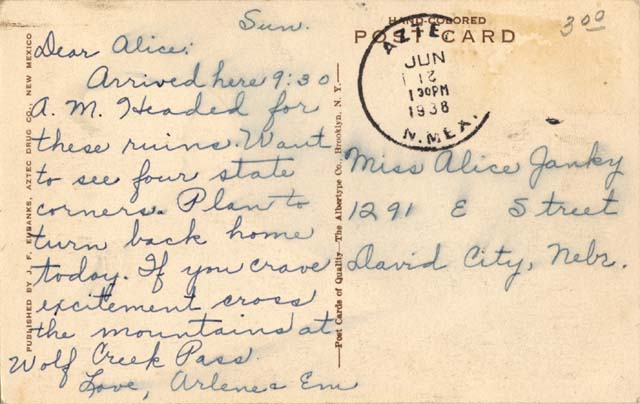 Sun.
Dear Alice:
Arrived here 9:30
A.M. Headed for
these ruins. Want
to see four state
corners. Plan to
turn back home
today. If you crave
excitement cross
the mountains at
Wolf Creek Pass.
Love, Arlene & Em
PUBLISHED BY J. F. EUBANKS, AZTEC DRUG CO., NEW MEXICO
Post Cards of Quality—The Albertype Co., Brooklyn, N. Y.
HAND-COLORED
POST CARD
3 00
AZTE
JUN
12
1 30PM
1938
N. MEX.
Miss Alice Janky
1291 E Street
David City, Nebr.